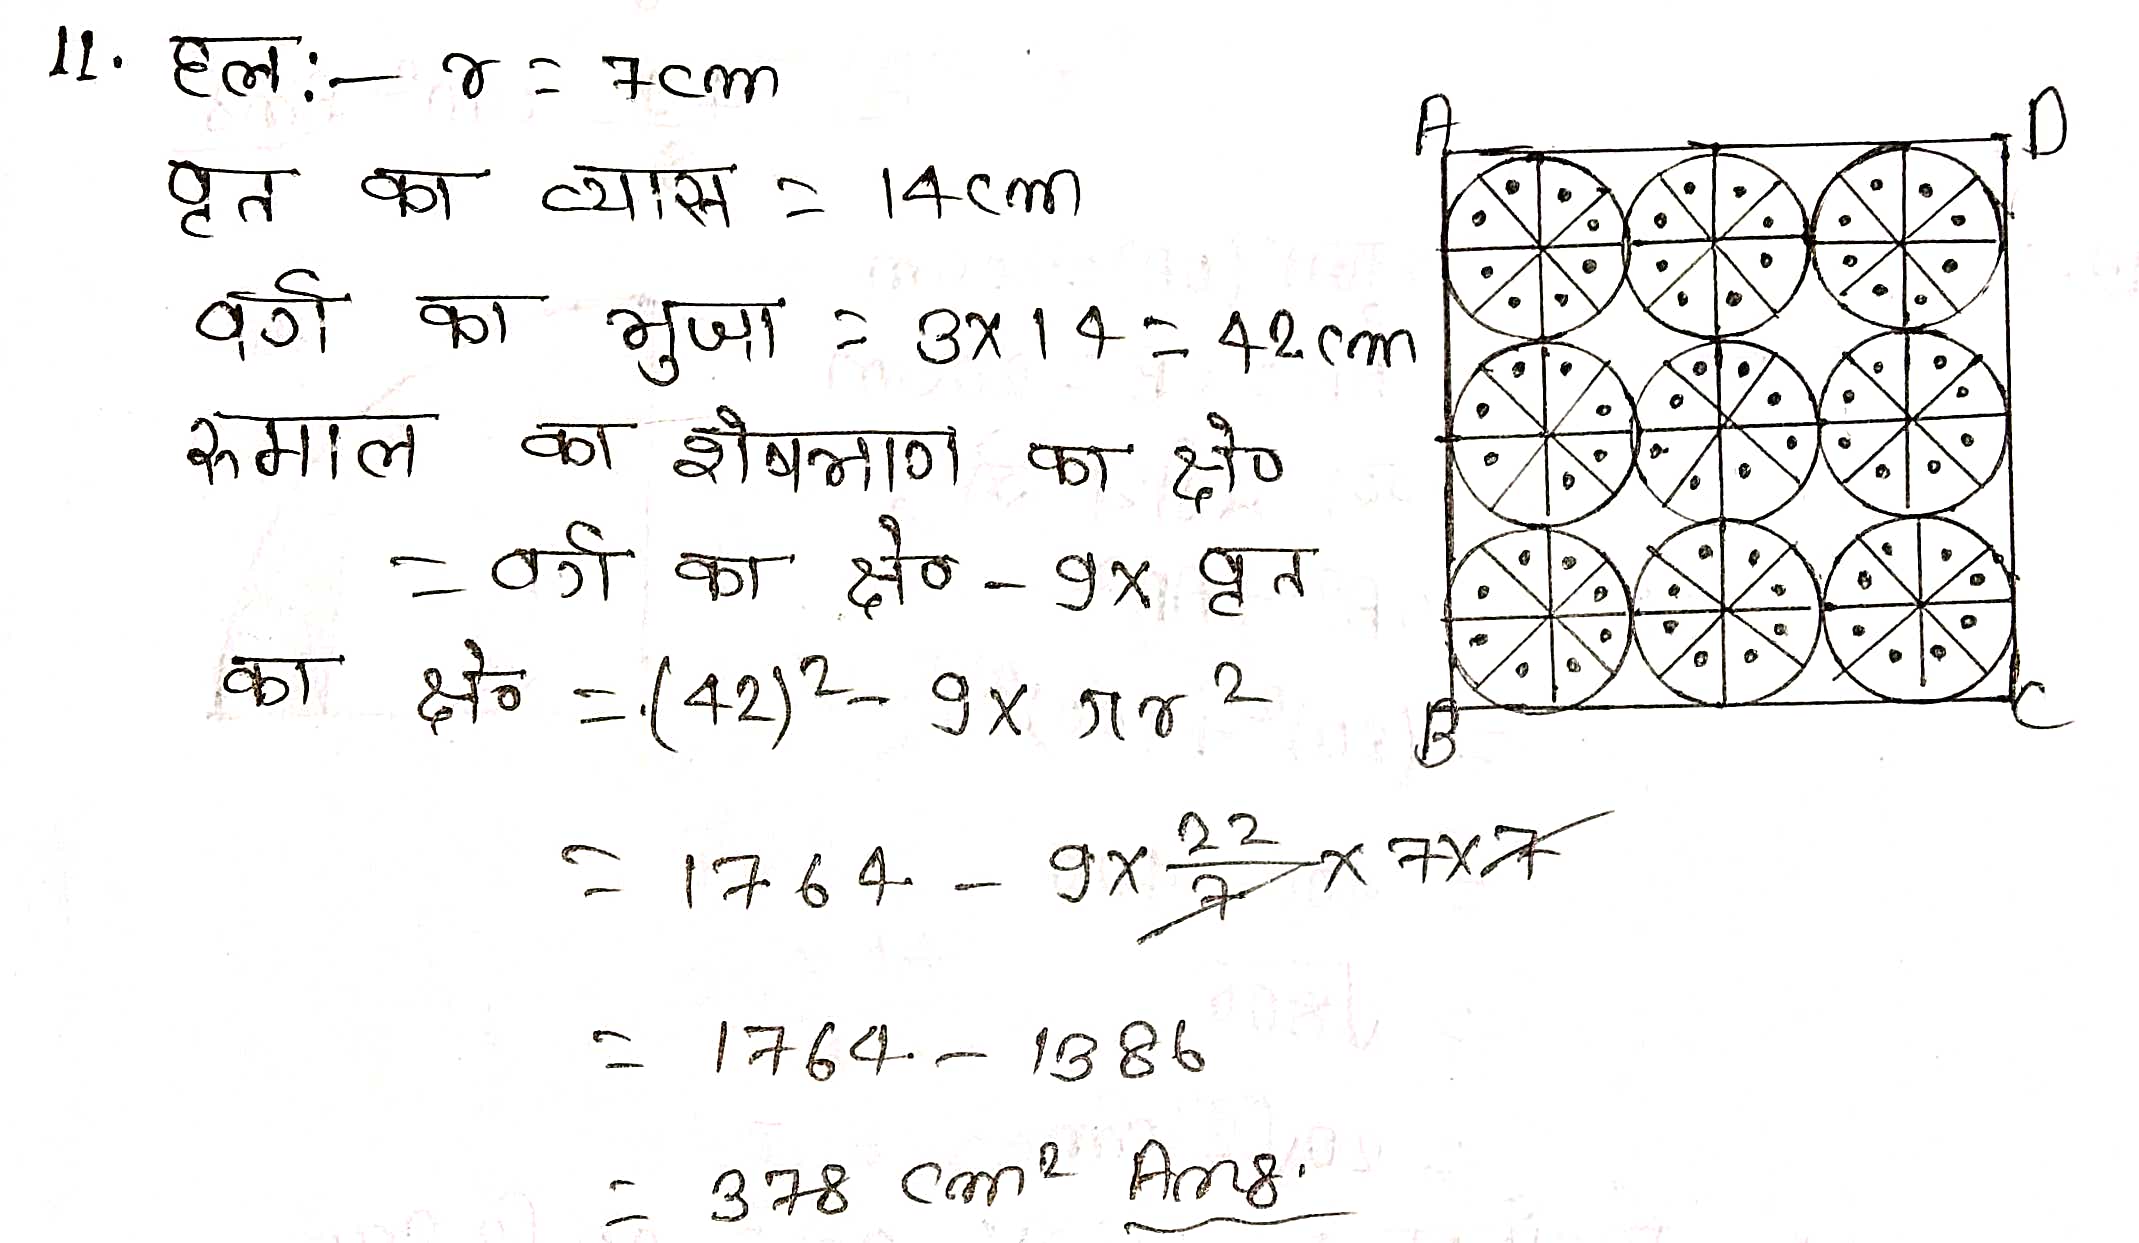 11. हल:- r = 7cm
वृत का व्यास = 14cm
वर्ग का भुजा = 3×14 = 42cm
रुमाल का शेषभाग का क्षे०
= वर्ग का क्षे० - 9× वृत
का क्षे० = (42)² - 9× πr²
= 1764 - 9× 22/7 × 7×7
= 1764 - 1386
= 378 cm² Ans.
A
D
B
C